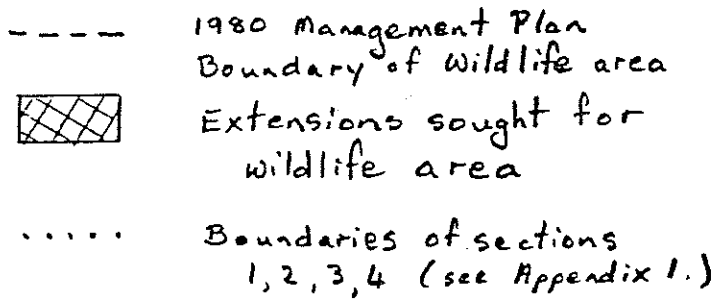 1980 Management Plan
Boundary of Wildlife area
Extensions sought for
wildlife area
Boundaries of sections
1, 2, 3, 4 (see Appendix 1.)